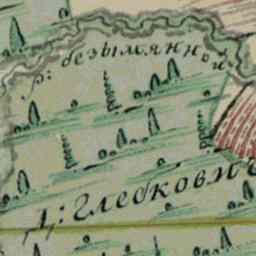 р: безымянной
д: Глебкович